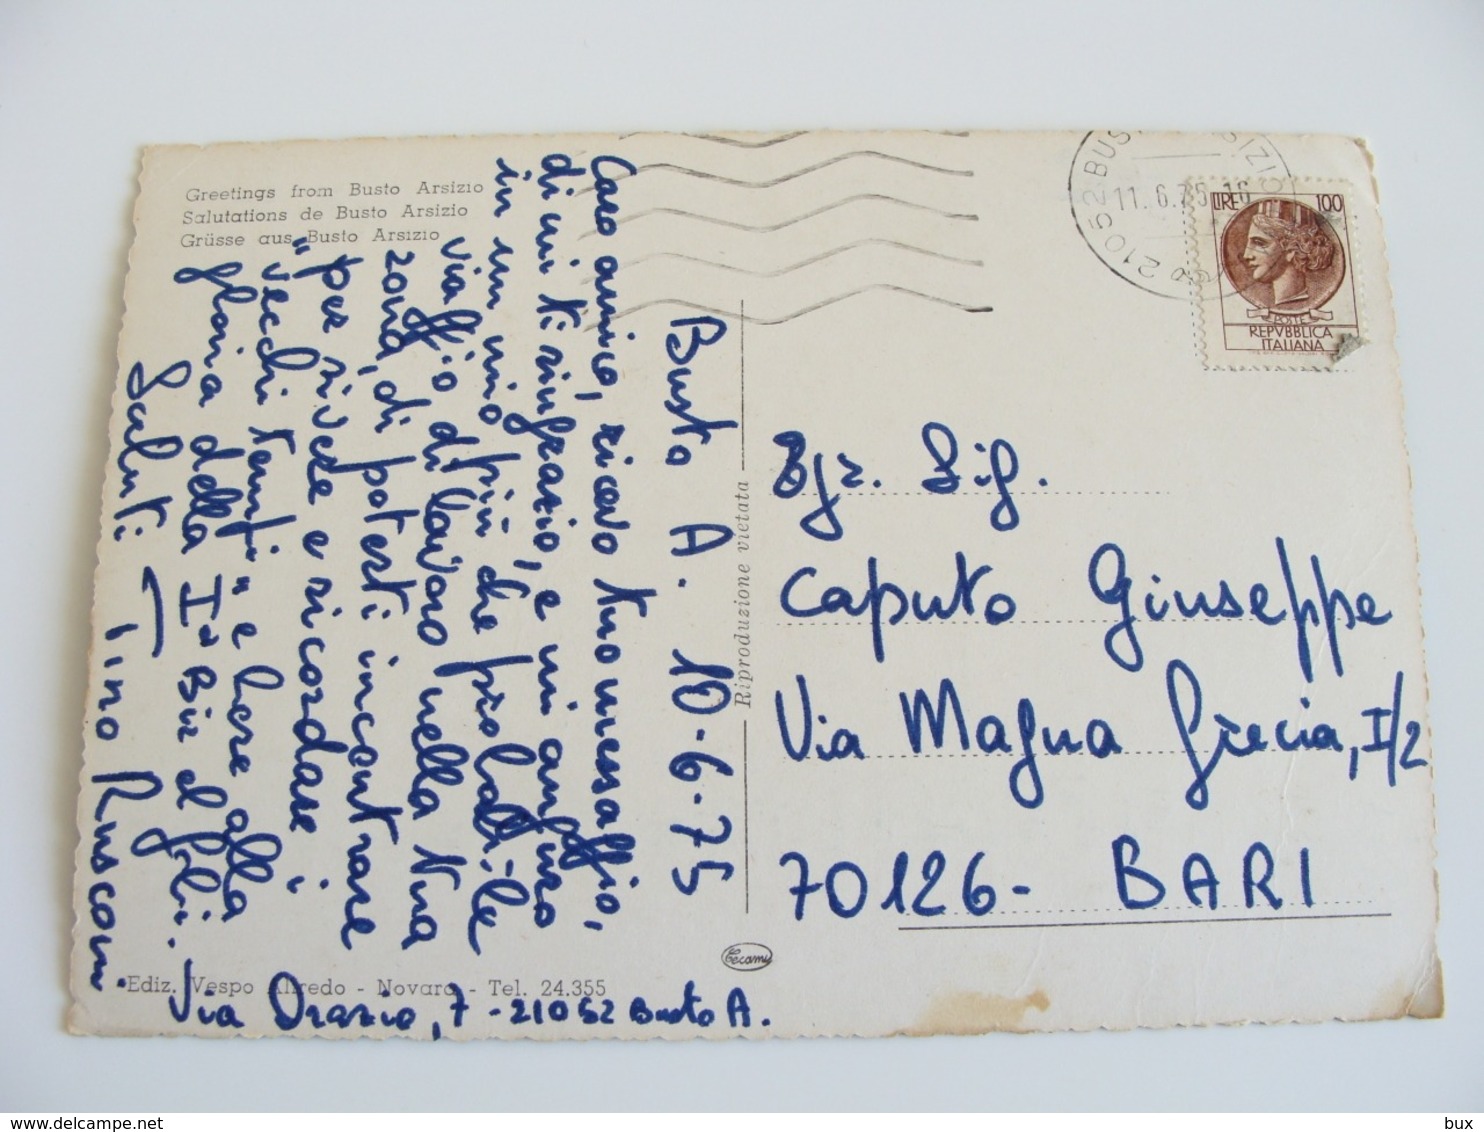 Greetings from Busto Arsizio
Salutations de Busto Arsizio
Grüsse aus Busto Arsizio
Busto A. 10-6-75
Caro amico, ricevo tuo messaggio,
di cui ti ringrazio, e mi auguro
in un mio più che probabile
viaggio di lavoro nella Tua
zona, di poterti incontrare
"per rivere e ricordare i
vecchi tempi" e bere alla
gloria della Iª Bir el
Saluti Tino Rusconi.
Via Orazio, 7 - 21052 Busto A.
Ediz. Vespo Alfredo - Novara - Tel. 24.355
Riproduzione vietata
Cecami
21052 BUS IZIO
11.6.75-16
LIRE 100
POSTE
REPVBBLICA
ITALIANA
Egr. Sig.
Caputo Giuseppe
Via Magna Grecia, I/2
70126 - BARI
www.delcampe.net
bux